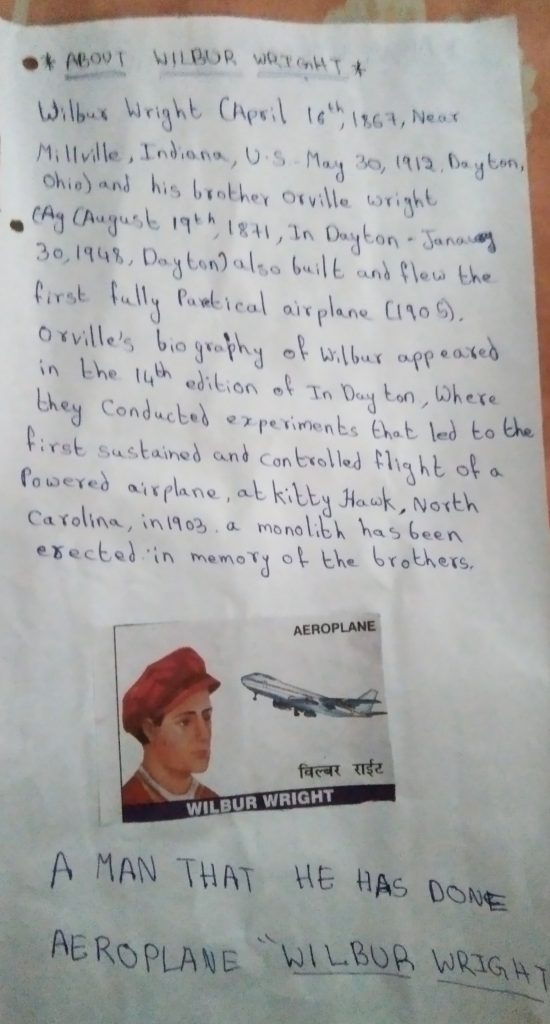 * ABOUT WILBUR WRIGHT *
Wilbur Wright (April 16th, 1867, Near
Millville, Indiana, U.S - May 30, 1912, Dayton,
Ohio) and his brother Orville wright
(Ag (August 19th, 1871, In Dayton - Janauay
30, 1948, Dayton) also built and flew the
first fully Paretical airplane (1905).
Orville's biography of Wilbur appeared
in the 14th edition of In Day ton, Where
they Conducted experiments that led to the
first sustained and controlled flight of a
Powered airplane, at kitty Hawk, North
Carolina, in 1903. a monolith has been
erected in memory of the brothers.
AEROPLANE
विल्बर राईट
WILBUR WRIGHT
A MAN THAT HE HAS DONE
AEROPLANE "WILBUR WRIGHT